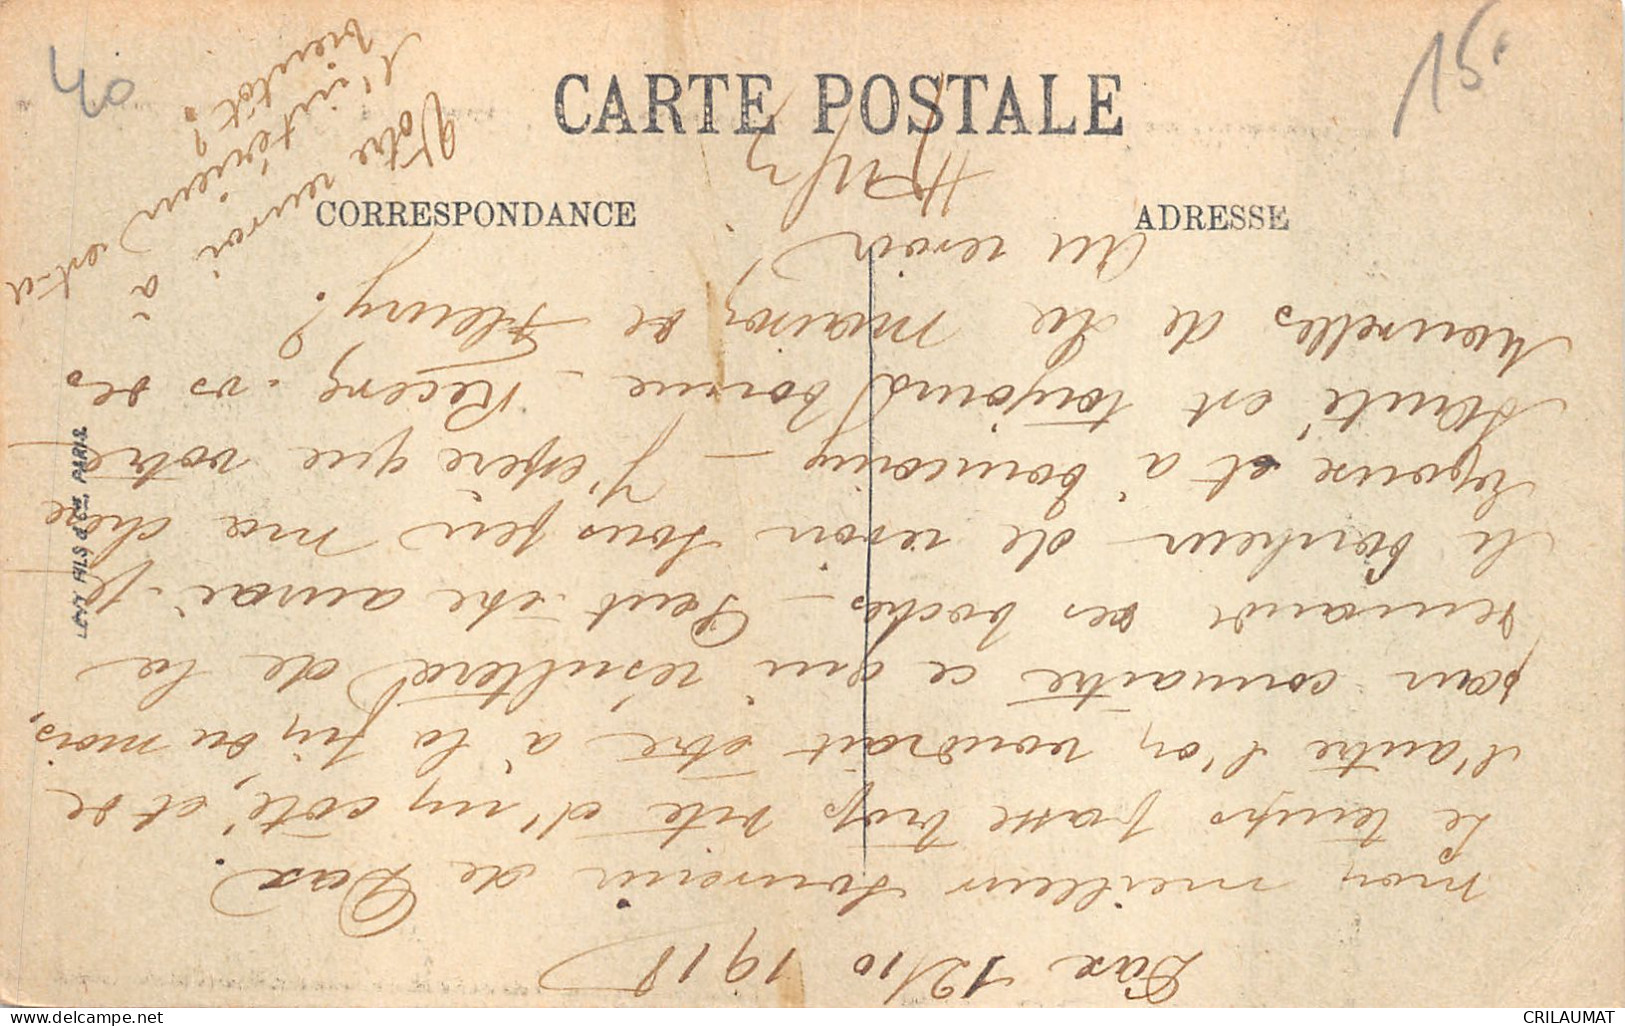 CARTE POSTALE
CORRESPONDANCE
ADRESSE
LEVY FILS & Cie, PARIS.
40
15
Dax 12/10 1918
Mon meilleur souvenir de Dax.
Le temps passe trop vite d'un côté, et de
l'autre l'on voudrait être à la fin du mois,
pour connaitre ce qui résultera de la
demande des boches – Peut-être aurai-je
le bonheur de revoir sous peu ma chère
épouse et à – J'espère que votre
santé est toujours bonne – Recevez-vs des
Nouvelles de la maison de Fleury?
Au revoir
Votre renvoi à
l'intérieur est-il
bientôt?
CRILAUMAT